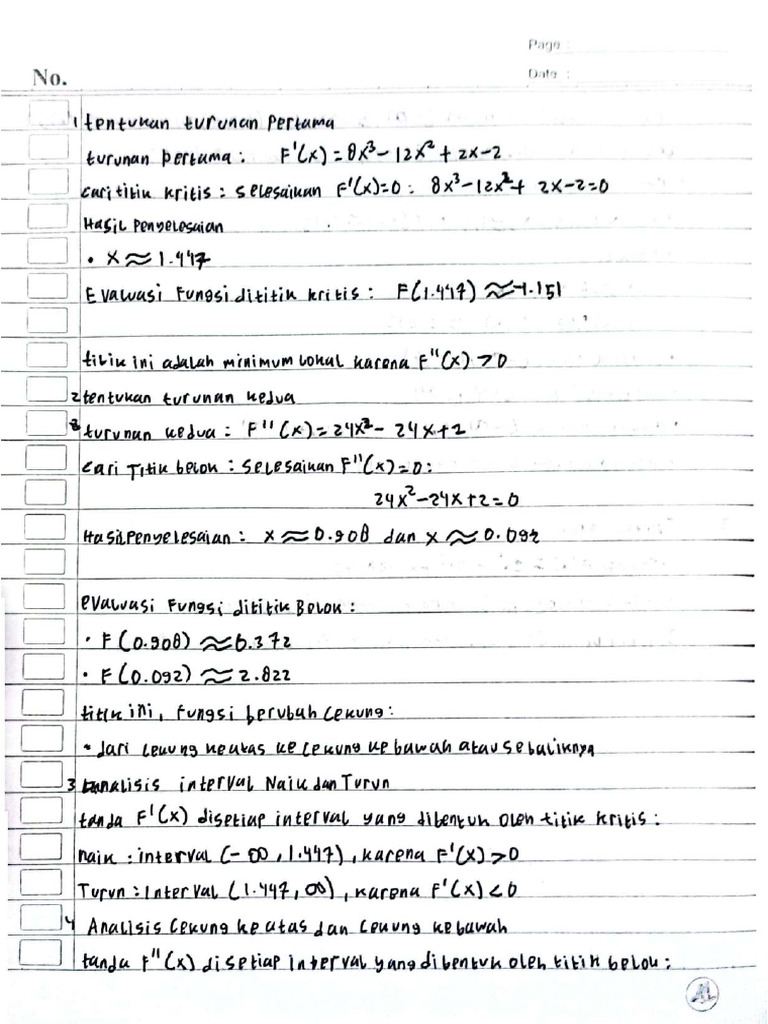 Page :
No.
Date :
1 tentukan turunan Pertama
turunan pertama : F'(x) = 8x³ - 12x² + 2x - 2
Cari titik kritis : selesaikan F'(x)=0 : 8x³ - 12x² + 2x - 2 = 0
Hasil Penyelesaian
• x ≈ 1.447
Evaluasi Fungsi dititik kritis : F(1.447) ≈ -1.151
titik ini adalah minimum lokal karena F''(x) > 0
2 tentukan turunan kedua
turunan kedua : F''(x) = 24x² - 24x + 2
Cari Titik belok : selesaikan F''(x) = 0 :
24x² - 24x + 2 = 0
Hasil Penyelesaian : x ≈ 0.908 dan x ≈ 0.092
evaluasi Fungsi dititik Belok :
• F(0.908) ≈ 0.372
• F(0.092) ≈ 2.822
titik ini, Fungsi berubah cekung :
• dari cekung keatas ke cekung kebawah atau sebaliknya
3 analisis interval Naik dan Turun
tanda F'(x) disetiap interval yang dibentuk oleh titik kritis :
naik : interval (-∞, 1.447), karena F'(x) > 0
Turun : Interval (1.447, ∞), karena F'(x) < 0
4 Analisis Cekung keatas dan Cekung kebawah
tanda F''(x) disetiap interval yang dibentuk oleh titik belok :